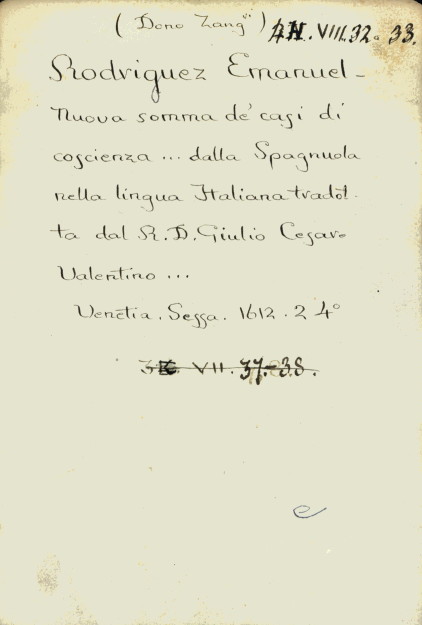 ( Dono Zang.ⁱ ) 4 N. VIII. 32. 33.
Rodriguez Emanuel -
Nuova somma de' casi di
coscienza ... dalla Spagnuola
nella lingua Italiana tradot-
ta dal R. D. Giulio Cesare
Valentino ...
Venetia. Sessa. 1612. 2 4°
VII. 37-38.
e